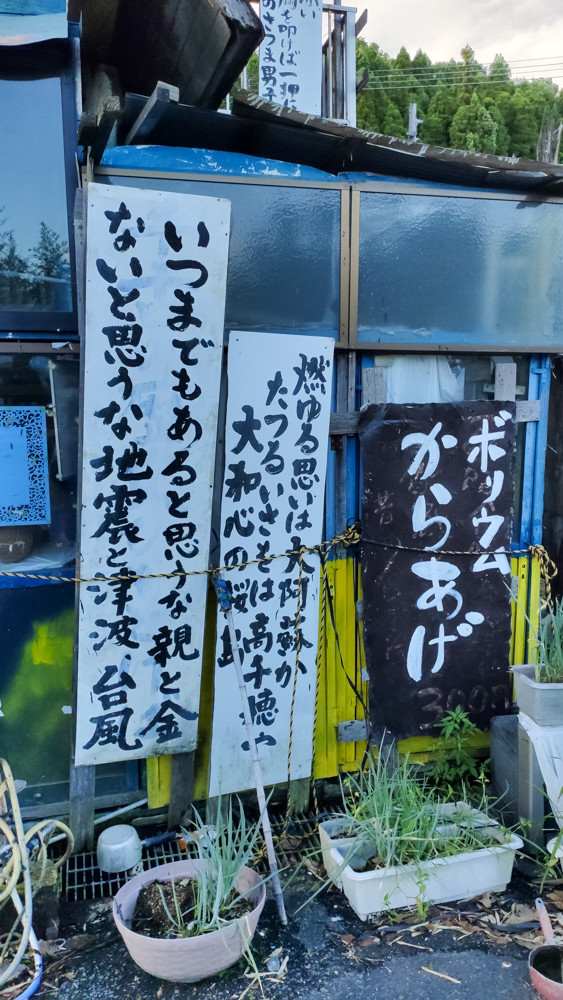 を叩けば一押に
のさつま男子
いつまでもあると思うな親と金
ないと思うな地震と津波、台風
燃ゆる思いは大阿蘇か
たつるいさをは高千穂や
大和心の桜島
ボリウム
からあげ